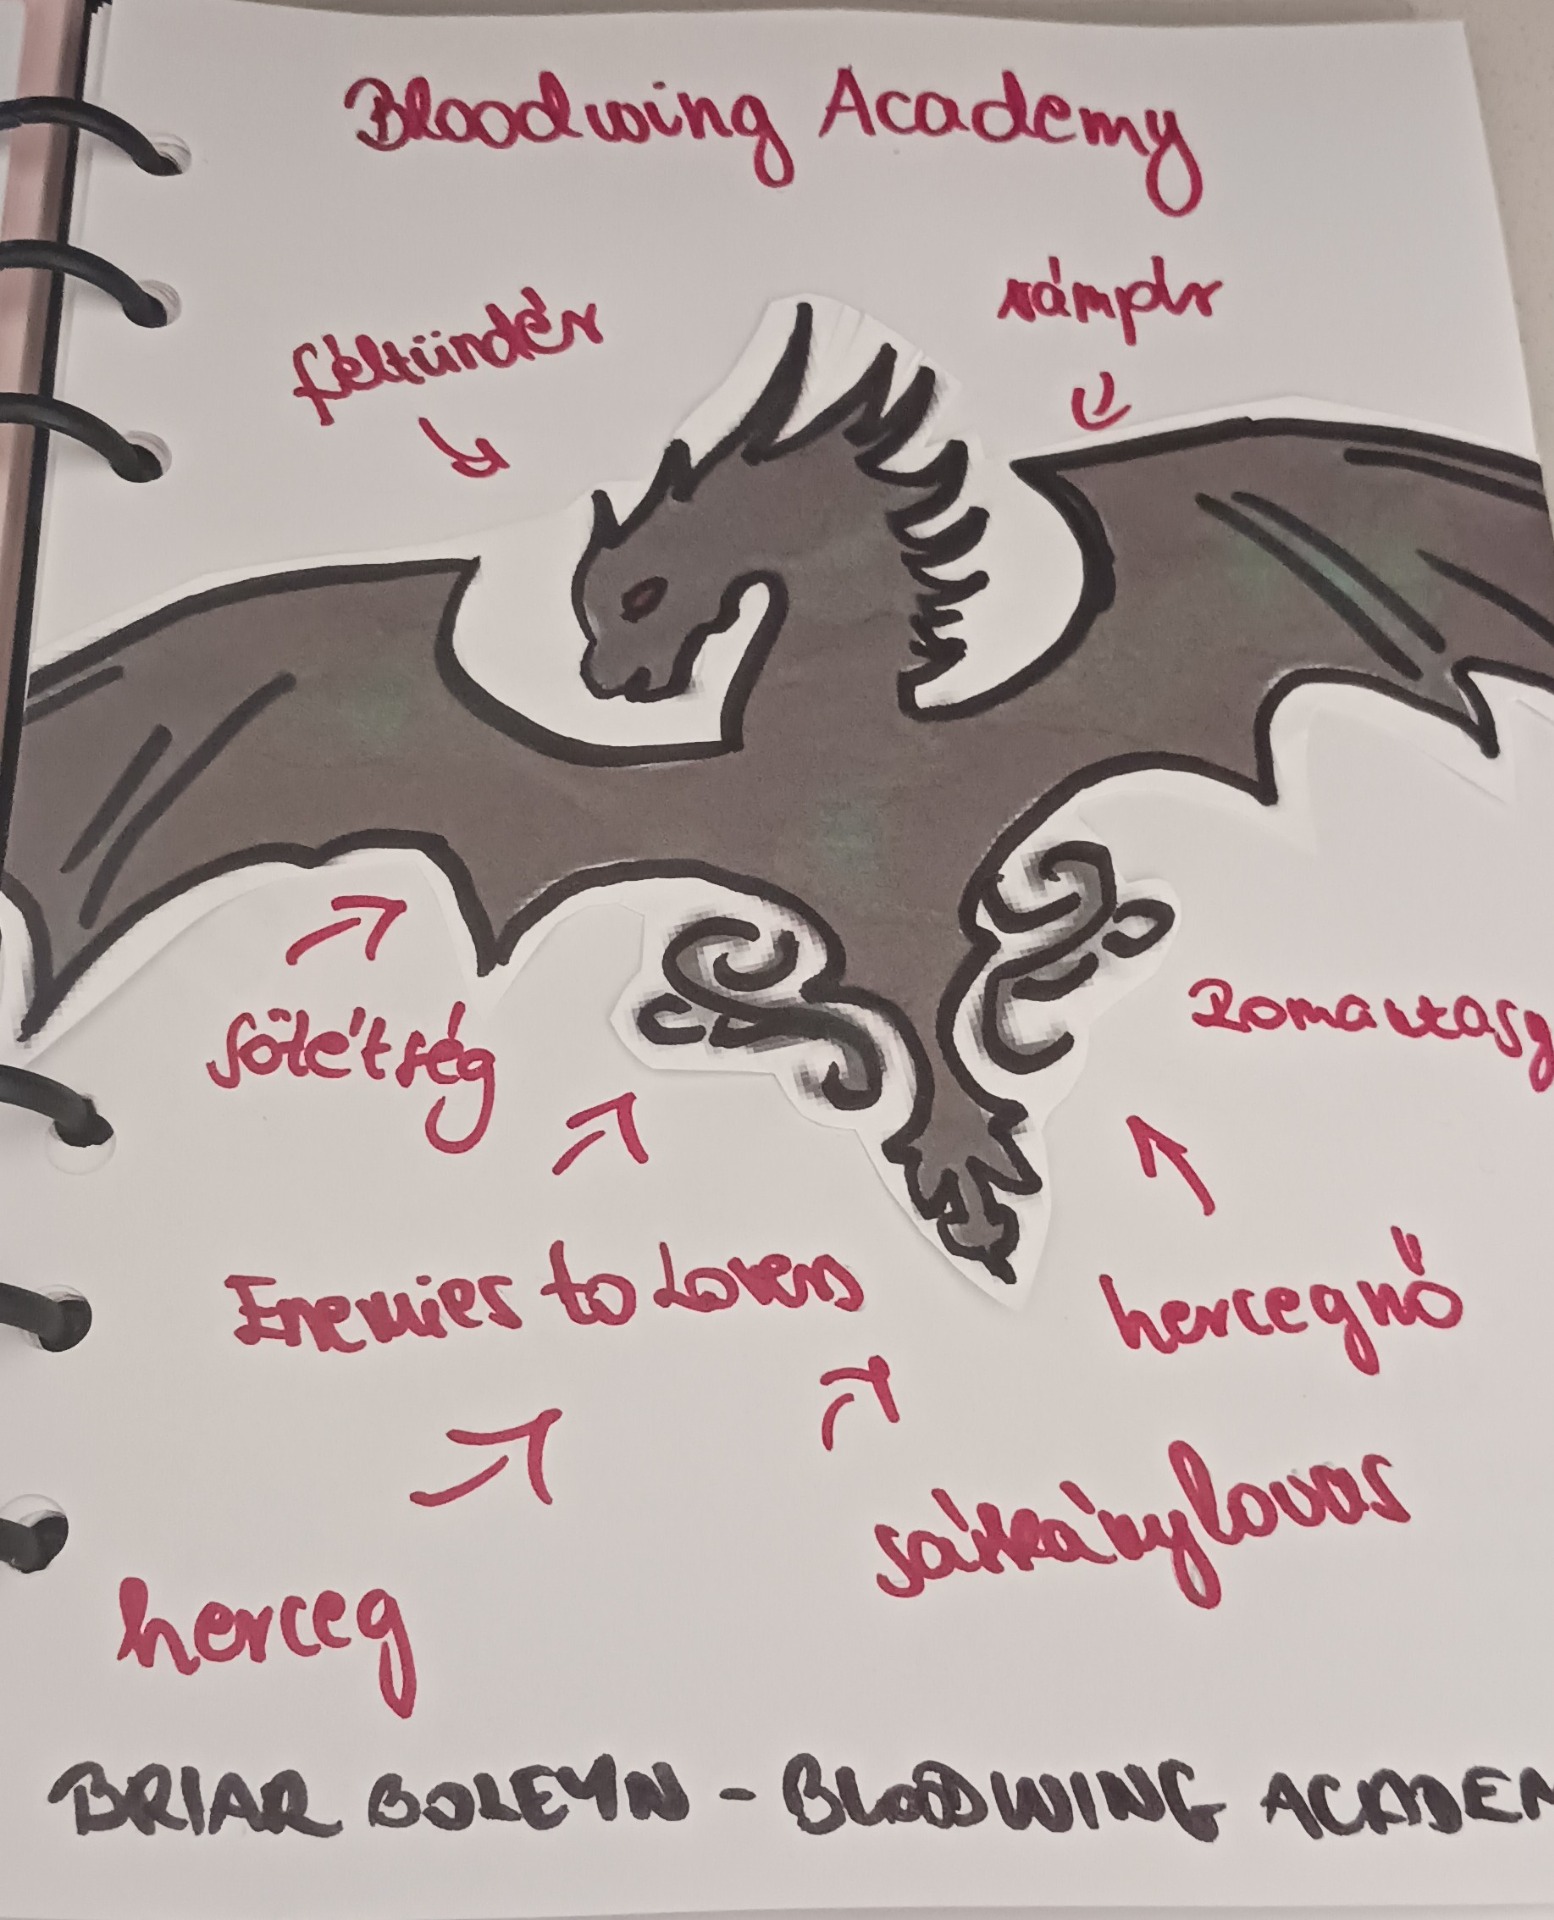 Bloodwing Academy
vámpír
féltündér
sötétség
Romantasy
Enemies to Lovers
hercegnő
sárkánylovas
herceg
BRIAR BOLEYN - BLOODWING ACADEM